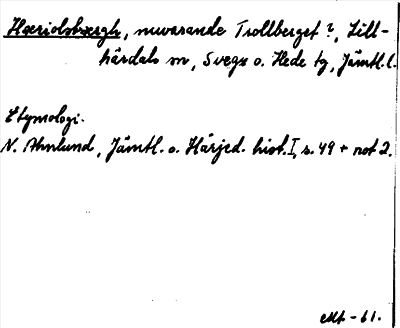 Hæriolsbærgh, nuvarande Trollberget?, Lill-
härdals sn, Svegs o. Hede tg, Jämtl. l.
Etymologi.
N. Ahnlund, Jämtl. o. Härjed. hist. I, s. 49 + not 2.
-61.